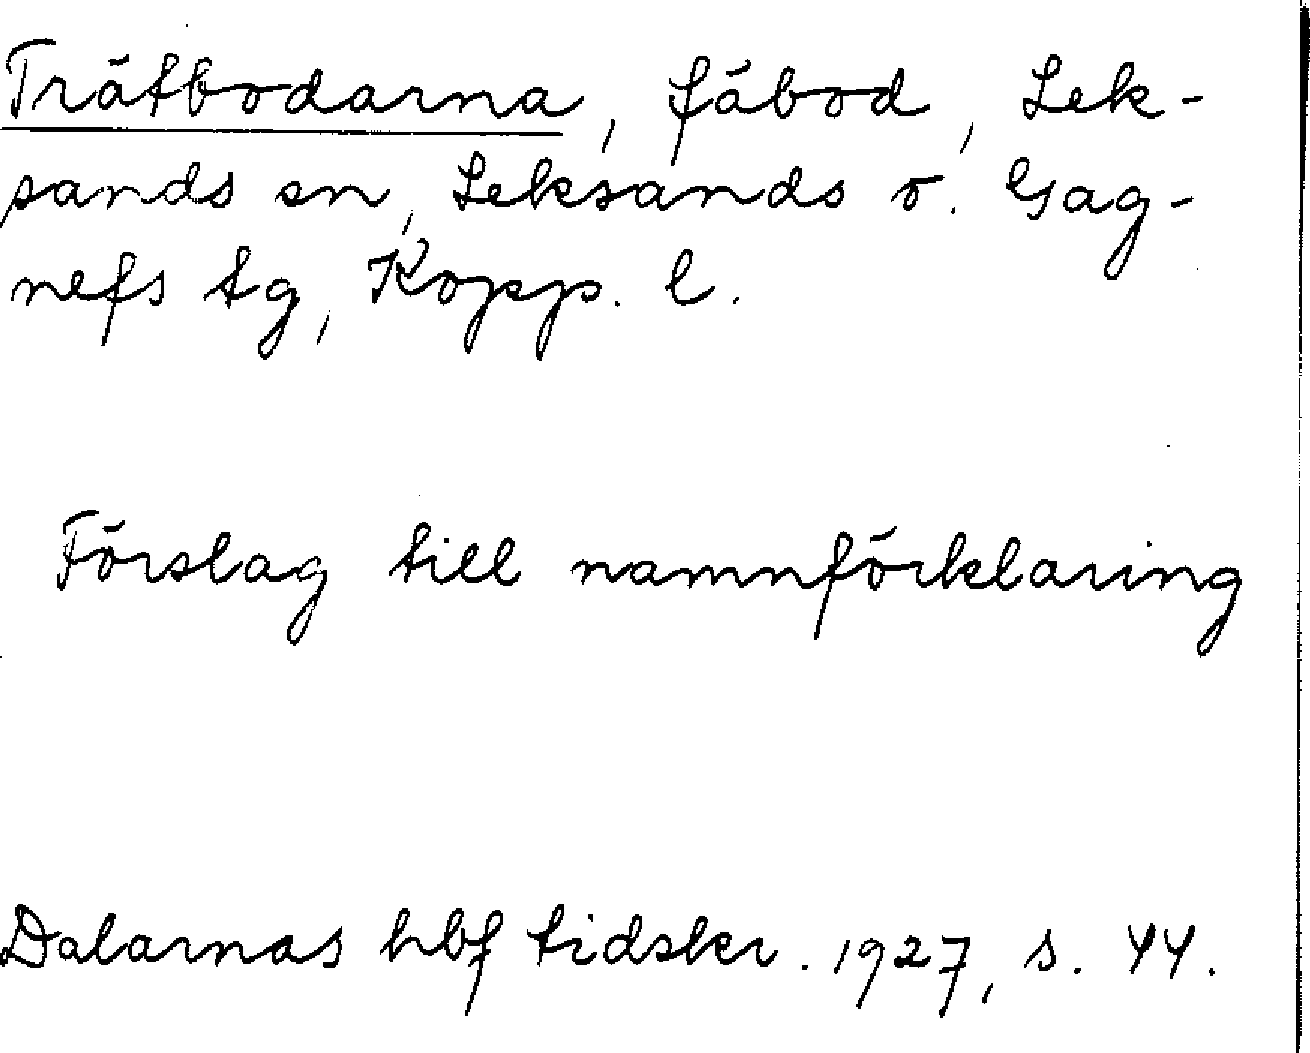 Trätbodarna, fäbod, Lek-
sands sn, Leksands o. Gag-
nefs tg, Kopp. l.
Förslag till namnförklaring
Dalarnas hbf tidskr. 1927, s. 44.